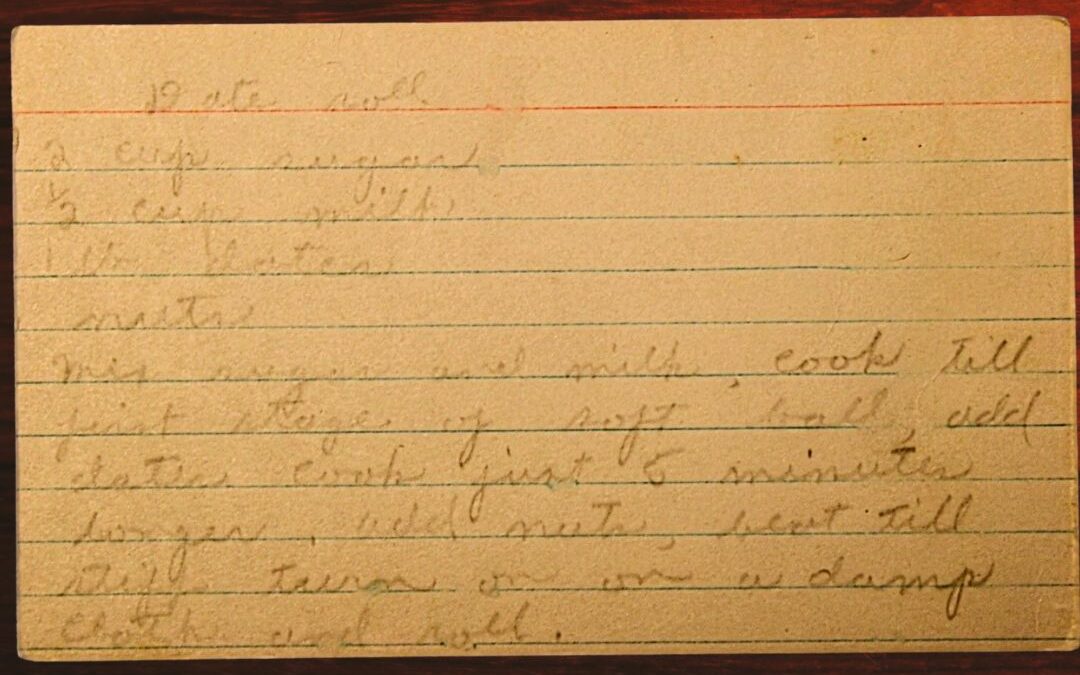 Date roll
2 cup sugar
1/2 cup milk
1 lb. dates
nuts
Mix sugar and milk, cook till
first stage of soft ball, add
dates cook just 5 minutes
longer, add nuts, beat till
stiff turn on on a damp
cloth and roll.